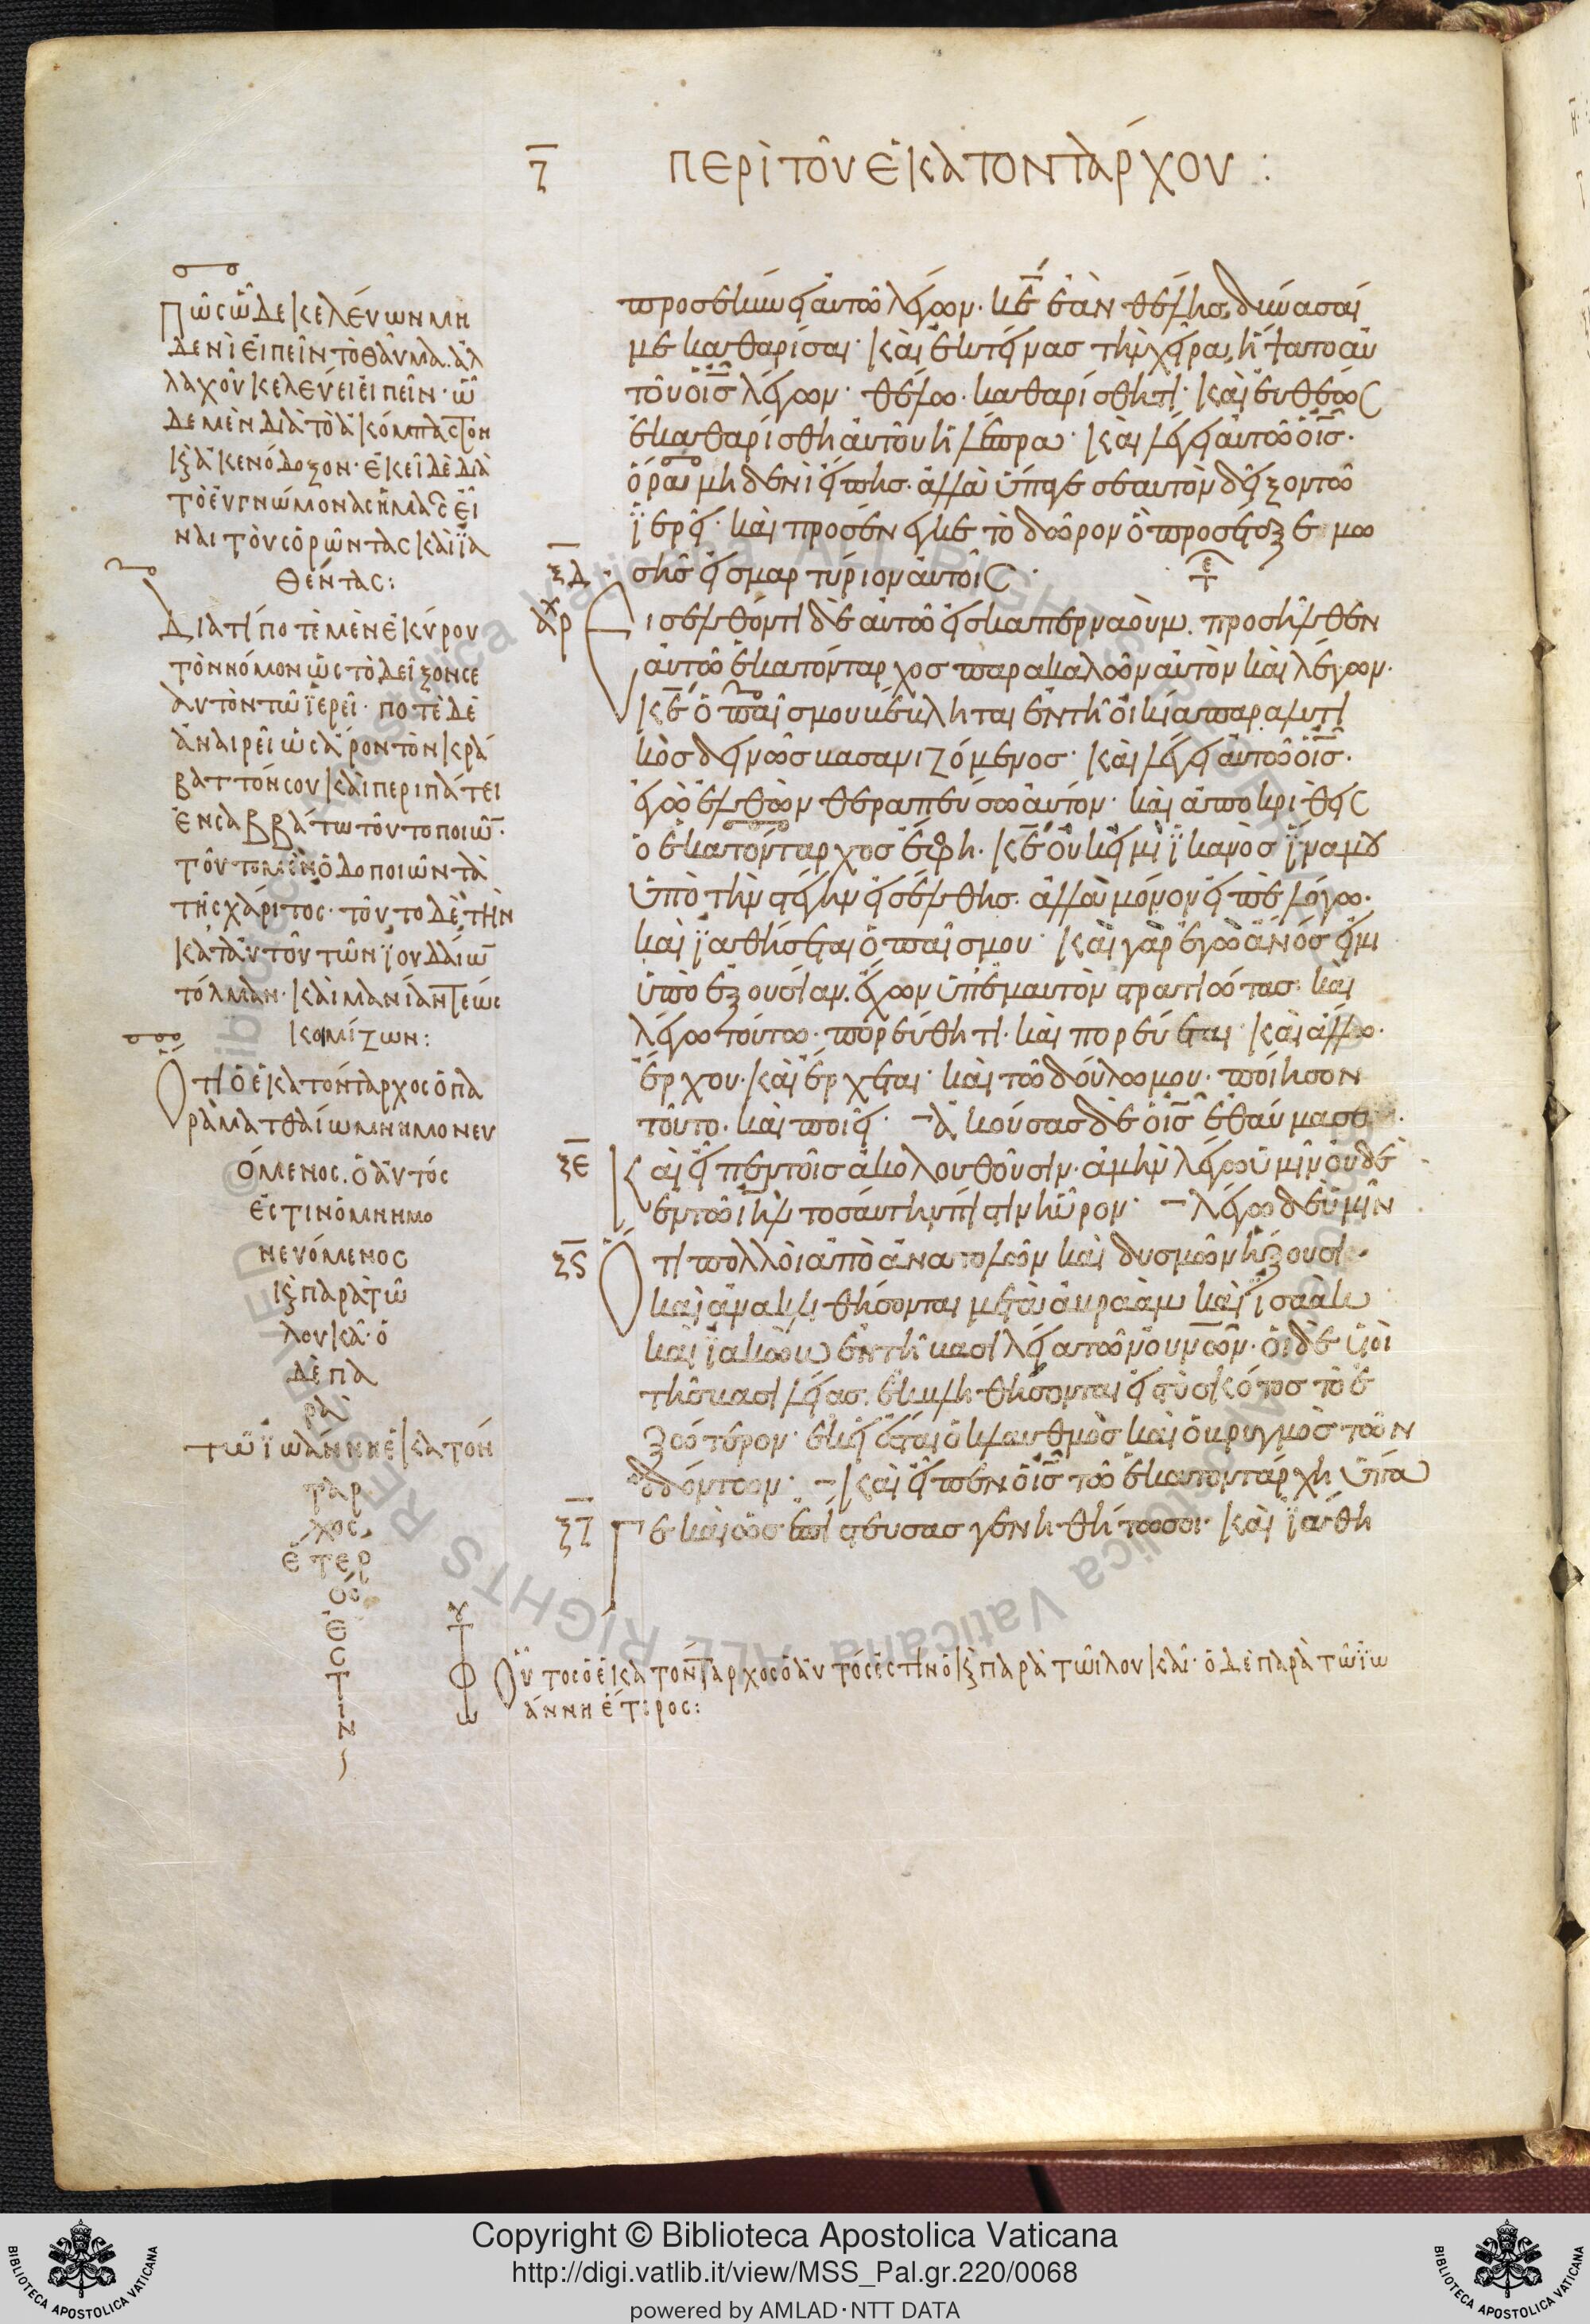 ζ̅ περὶ τοῦ ἑκατοντάρχου :
προσεκύνει αὐτῶ λέγων· κ̅ε̅ ἐὰν θέλης δύνασαί
με καθαρίσαι· καὶ ἐκτείνας τὴν χεῖρα, ἥψατο αὐ
τοῦ ὁ ι̅ς̅ λέγων· θέλω. καθαρίσθητι· καὶ εὐθέως
ἐκαθαρίσθη αὐτοῦ ἡ λέπρα· καὶ λέγει αὐτῶ ὁ ι̅ς̅·
ὅρα μηδενὶ εἴπης. ἀλλὰ ὕπαγε σεαυτὸν δεῖξον τῶ
ἱερεῖ· καὶ προσένεγκε τὸ δῶρον ὃ προσέταξε μω
ξ̅δ̅ σῆς εἰς μαρτύριον αὐτοῖς·
ἀρχ Εἰσελθόντι δὲ αὐτῶ εἰς καπερναούμ. προσῆλθεν
αὐτῶ ἑκατόνταρχος παρακαλῶν αὐτὸν καὶ λέγων·
κ̅ε̅ ὁ παῖς μου βέβληται ἐν τῆ οἰκία παραλυτι
κὸς δεινῶς βασανιζόμενος· καὶ λέγει αὐτῶ ὁ ι̅ς̅·
ἐγὼ ἐλθὼν θεραπεύσω αὐτόν· καὶ ἀποκριθεὶς
ὁ ἑκατόνταρχος ἔφη· κ̅ε̅ οὐκ εἰμὶ ἱκανὸς ἵνα μου
ὑπὸ τὴν στέγην εἰσέλθης· ἀλλὰ μόνον εἰπὲ λόγω·
καὶ ἰαθήσεται ὁ παῖς μου· καὶ γὰρ ἐγὼ ἄνός εἰμι
ὑπὸ ἐξουσίαν. ἔχων ὑπ' ἐμαυτὸν στρατιώτας· καὶ
λέγω τούτω· πορεύθητι· καὶ πορεύεται· καὶ ἄλλω·
ἔρχου· καὶ ἔρχεται· καὶ τῶ δούλω μου· ποίησον
τοῦτο. καὶ ποιεῖ· ἀκούσας δὲ ὁ ι̅ς̅ ἐθαύμασε·
ξ̅ε̅ Καὶ εἶπεν τοῖς ἀκολουθοῦσιν· ἀμὴν λέγω ὑμῖν οὐδὲ
ἐν τῶ ι̅η̅λ̅ τοσαύτην πίστιν ηὗρον· λέγω δὲ ὑμῖν
ξ̅ς̅ Ὅτι πολλοὶ ἀπὸ ἀνατολῶν καὶ δυσμῶν ἥξουσι·
καὶ ἀνακλιθήσονται μετὰ ἀβραὰμ καὶ ἰσαὰκ
καὶ ἰακὼβ ἐν τῆ βασιλεία τῶν οὐν̅ῶν· οἱ δὲ υἱοὶ
τῆς βασιλείας· ἐκβληθήσονται εἰς τὸ σκότος τὸ ἐ
ξώτερον· ἐκεῖ ἔσται ὁ κλαυθμὸς καὶ ὁ βρυγμὸς τῶν
ὀδόντων· καὶ εἶπεν ὁ ι̅ς̅ τῶ ἑκατοντάρχη ὕπα
ξ̅ζ̅ Γε καὶ ὡς ἐπίστευσας γενηθήτω σοι· καὶ ἰάθη
Πῶς ὧδε κελεύων μη
δενὶ εἰπεῖν τὸ θαῦμα. ἀλ
λαχοῦ κελεύει εἰπεῖν· ὧ
δε μὲν διὰ τὸ ἀκόμπαστον
κ(αὶ) ἀκενόδοξον· ἐκεῖ δὲ διὰ
τὸ εὐγνώμονας ἡμᾶς εἶ
ναι τοὺς ὁρῶντας καὶ ἰα
θέντας:
Διατί ποτὲ μὲν ἐκύρου
τὸν νόμον ὡς τὸ δεῖξον σε
αυτὸν τῶ ἱερεῖ· ποτὲ δὲ
ἀναιρεῖ ὡς ἆρον τὸν κρά
βαττόν σου καὶ περιπάτει
ἐν σαββάτω τοῦτο ποιῶν·
τοῦτο μὲν ὁδοποιῶν τὰ
τῆς χάριτος· τοῦτο δὲ τὴν
κατ' αὐτοῦ τῶν ἰουδαίων
τόλμαν· καὶ μανίαν τέως
κομίζων:
Ὅτι ὁ ἑκατόνταρχος ὁ πα
ρὰ ματθαίω μνημονευ
όμενος. ὁ αὐτός
ἐστιν ὁ μνημο
νευόμενος
κ(αὶ) παρὰ τῶ
λουκᾶ· ὁ
δὲ πα
ρὰ
τῶ ἰωάννη ἑκατόν
ταρ
χος
ἕτερ
ός
ἐ
σ
τ
ι
ν
Οὗτος ὁ ἑκατόνταρχος ὁ αὐτός ἐστιν ὁ κ(αὶ) παρὰ τῶ λουκᾶ· ὁ δὲ παρὰ τῶ ἰω
άννη ἕτερος:
Copyright © Biblioteca Apostolica Vaticana
http://digi.vatlib.it/view/MSS_Pal.gr.220/0068
powered by AMLAD·NTT DATA
BIBLIOTECA APOSTOLICA VATICANA
BIBLIOTECA APOSTOLICA VATICANA